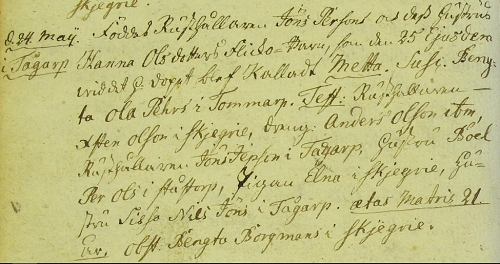 skjegrie.
d. 24 Maij. Föddes Rusthållaren Jöns Persons och dess Hustrus
i Tågarp Hanna Olsdotters Flicko-Barn, som den 25 Ejusdem
wid det h. dopet blef Kalladt Metta. Susc. Beng-
ta Ola Pehrs i Tommarp. Test: Rusthållaren
Olson i Skjegrie, dräng Anders Olson ibm,
Rusthållaren Jöns Jenson i Tågarp, Hustru Boel
Per Ols i Håstorp, Pigan Elna i Skjegrie, Hu-
stru Sissa Nils Jöns i Tågarp. ætas Matris 21
År, obst. Bengta Borgmans i Skjegrie.